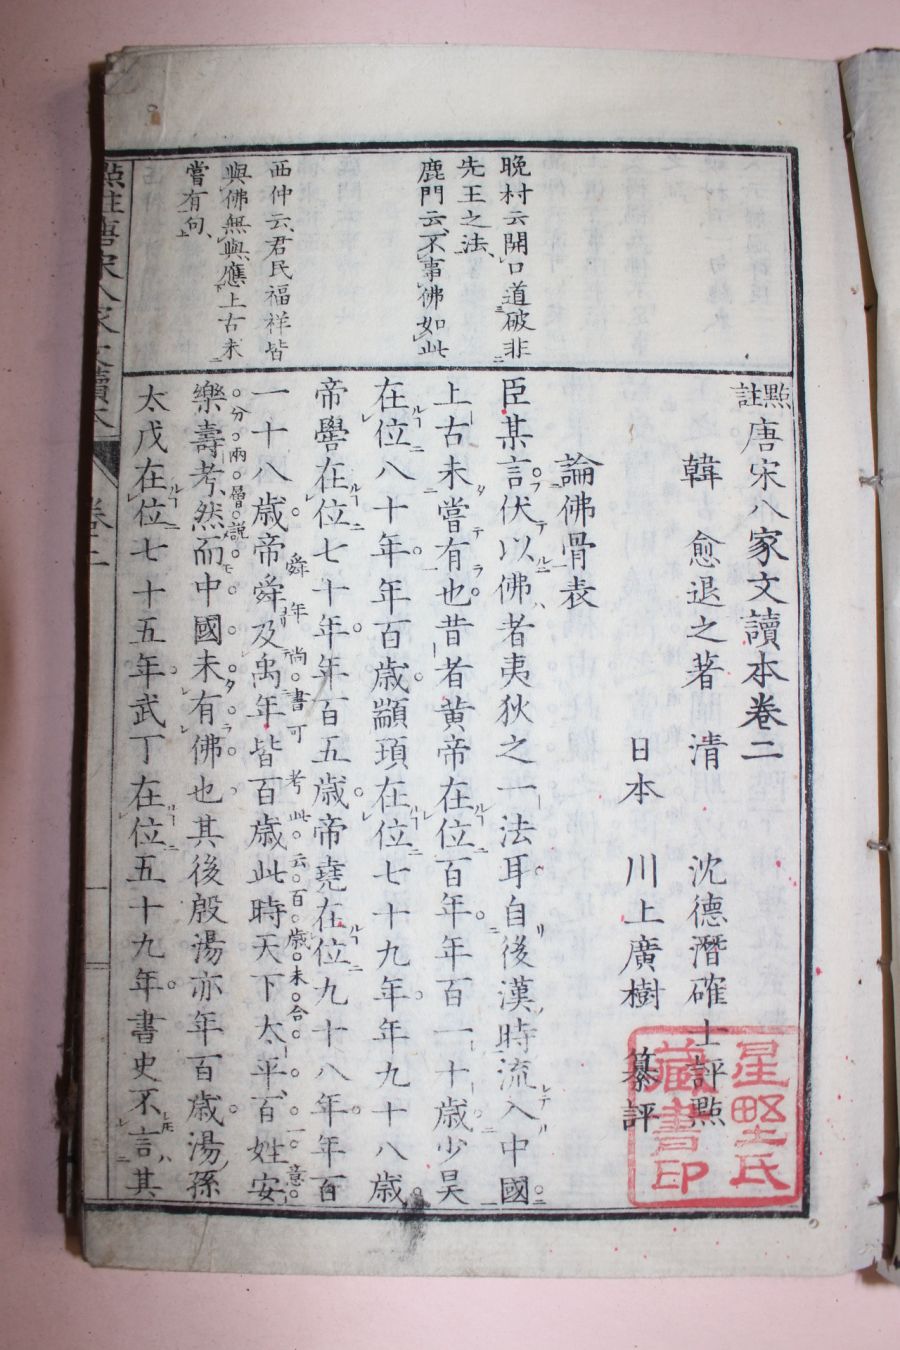 點註唐宋八家文讀本卷二
韓愈退之著 清 沈德潛確士評點
日本 川上廣樹 纂評
論佛骨表
臣某言伏以佛者夷狄之一法耳自後漢時流入中國
上古未嘗有也昔者黃帝在位百年年百一十歲少昊
在位八十年年百歲顓頊在位七十九年年九十八歲
帝嚳在位七十年年百五歲帝堯在位九十八年年百
一十八歲帝舜及禹年皆百歲此時天下太平百姓安
舜年尚書可考此云百歲未合
一意
分兩層説
樂壽考然而中國未有佛也其後殷湯亦年百歲湯孫
太戊在位七十五年武丁在位五十九年書史不言其
晚村云開口道破非
先王之法
鹿門云不事佛如此
西仲云君民福祥皆
與佛無與應上古未
嘗有句
點註唐宋八家文讀本
卷二
星野氏
藏書印